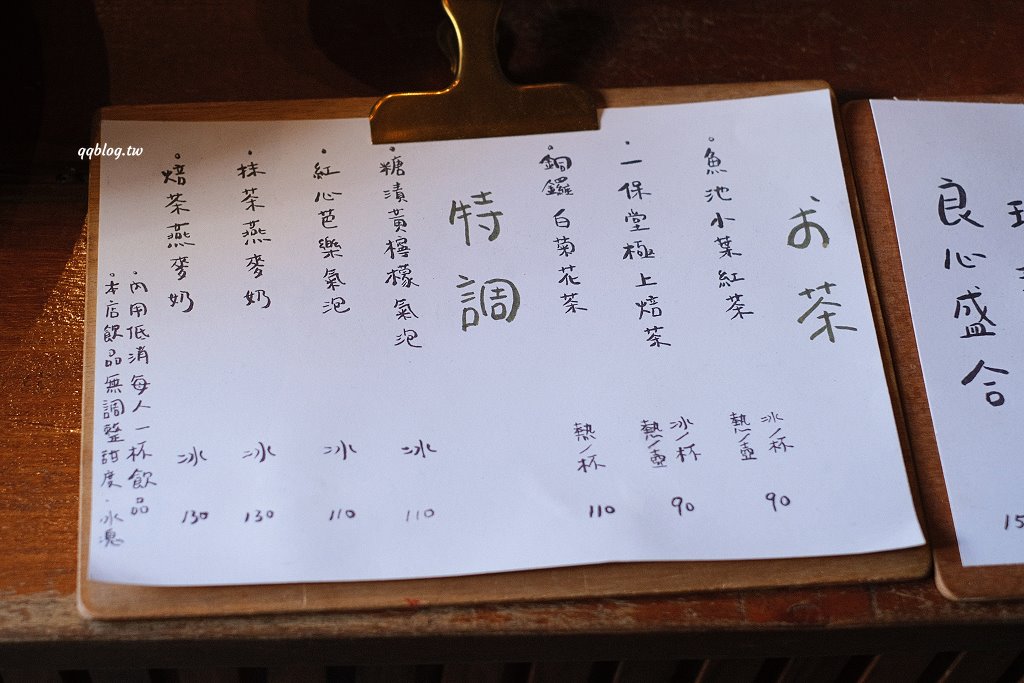 お茶
・魚池小葉紅茶
冰/杯
熱/壺
90
・一保堂極上焙茶
冰/杯
熱/壺
90
・銅鑼白菊花茶
熱/杯
110
特調
・糖漬黃檸檬氣泡
冰
110
・紅心芭樂氣泡
冰
110
・抹茶燕麥奶
冰
130
・焙茶燕麥奶
冰
130
・內用低消每人一杯飲品
・本店飲品無調整甜度・冰塊
良心盛合
qqblog.tw